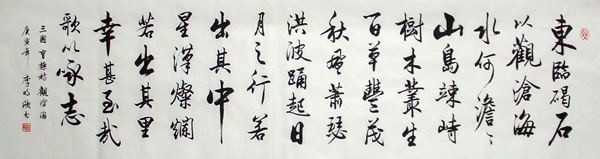 東臨碣石
以觀滄海
水何澹〻
山島竦峙
樹木叢生
百草豐茂
秋風蕭瑟
洪波踊起日
月之行若
出其中
星漢燦爛
若出其里
幸甚至哉
歌以詠志
三國 曹操詩 觀滄海
庚寅年 李書